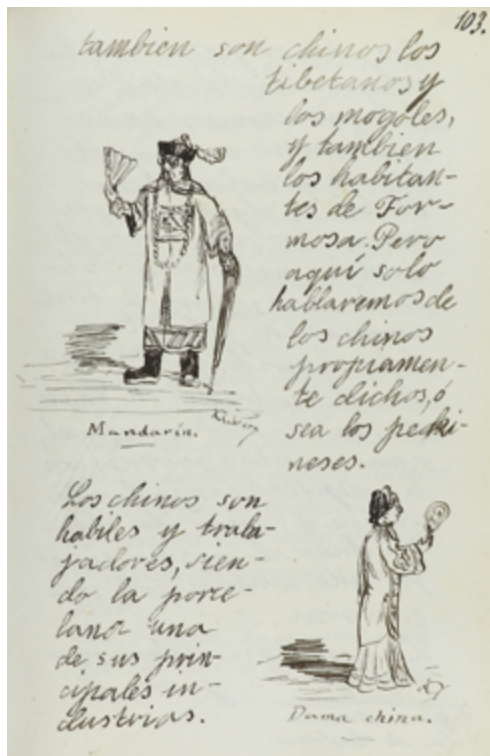 103.
tambien son chinos los
tibetanos y
los mogoles,
y tambien
los habitan-
tes de For-
mosa. Pero
aquí solo
hablaremos de
los chinos
propiamen-
te dichos, ó
sea los peki-
neses.
Mandarín.
Los chinos son
habiles y traba-
jadores, sien-
do la porce-
lana una
de sus prin-
cipales in-
dustrias.
Dama china.